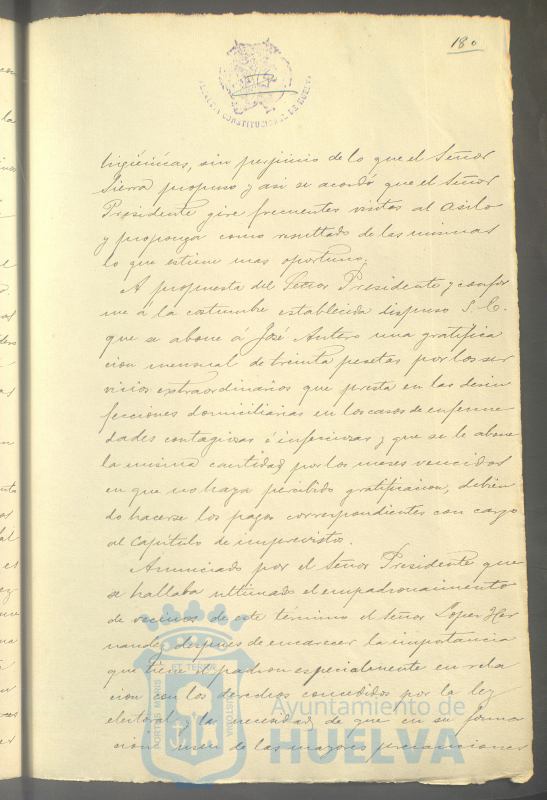 180
CONSTITUCIONAL DE HUELVA
higiénicas, sin perjuicio de lo que el Señor
Sierra propuso y asi se acordó que el Señor
Presidente gire frecuentes visitas al Asilo
y proponga como resultado de las mismas
lo que estime mas oportuno.
A propuesta del Señor Presidente y confor
me a la costumbre establecida dispuso S. E.
que se abone á José Antero una gratifica
cion mensual de treinta pesetas por los ser
vicios extraordinarios que presta en las desin
fecciones domiciliarias en los casos de enferme
dades contagiosas é infecciosas y que se le abone
la misma cantidad por los meses vencidos
en que no haya percibido gratificacion, debien
do hacerse los pagos correspondientes con cargo
al Capitulo de imprevistos.
Anunciado por el Señor Presidente que
se hallaba ultimado el empadronamiento
de vecinos de este término el Señor Lopez Her
nandez despues de encarecer la importancia
que tiene el padron especialmente en rela
cion con los derechos concedidos por la ley
electoral y la necesidad de que en su forma
cion usen de las mayores precauciones
PORTUS MARIS ET TERRÆ CUSTODIA
Ayuntamiento de
HUELVA